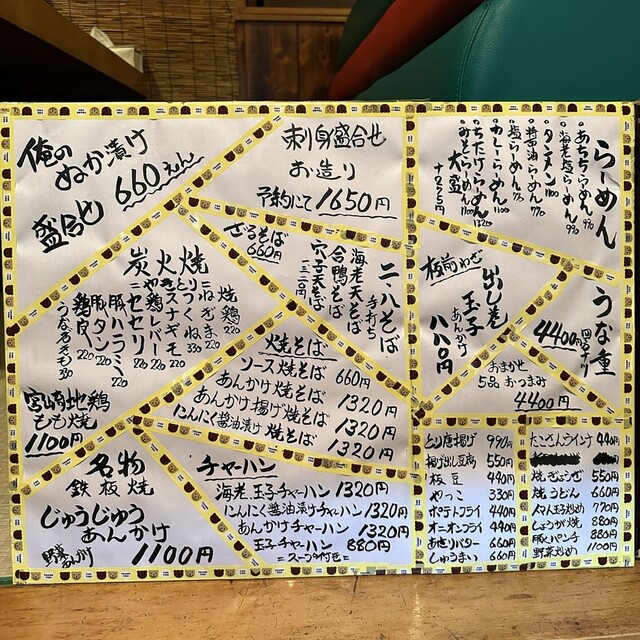 俺の
ぬか漬け
盛合せ 660えん
刺身盛合せ
お造り
予約にて1650円
らーめん
海老塩らーめん
タンメン 1100
醤油らーめん 770
塩らーめん 770
カレーらーめん 1100
みそらーめん 1100
大盛
炭火焼
=やきとり=
焼鶏
ねぎま
つくね
スナギモ
鶏レバー 220
セセリ 220
豚ハラミ 220
豚タン 220
宮崎地鶏
もも焼
1100円
ざるそば
660円
二・八そば
手打ち
海老天そば
合鴨そば
穴子天そば
板前おまかせ
出し巻
玉子
あんかけ
八八〇円
うな重
4400円
おまかせ
5品おつまみ
4400円
焼そば
ソース焼そば 660円
あんかけ焼そば 1320円
あんかけ揚げ焼そば 1320円
にんにく醤油漬け焼そば 1320円
名物
鉄板焼
じゅうじゅう
あんかけ
野菜あんかけ 1100円
チャーハン
海老玉子チャーハン 1320円
にんにく醤油漬チャーハン 1320円
あんかけチャーハン 1320円
玉子チャーハン 880円
=スープ付き=
とり唐揚げ 990円
揚げ出し豆腐 550円
枝豆 440円
やっこ 330円
ポテトフライ 440円
オニオンフライ 440円
あさりバター 660円
しゅうまい 660円
たこさんウインナ 440円
焼ぎょうざ 550円
焼うどん 660円
ハムエッグ 770円
しょうが焼 880円
豚バンチ 880円
野菜炒め 1100円